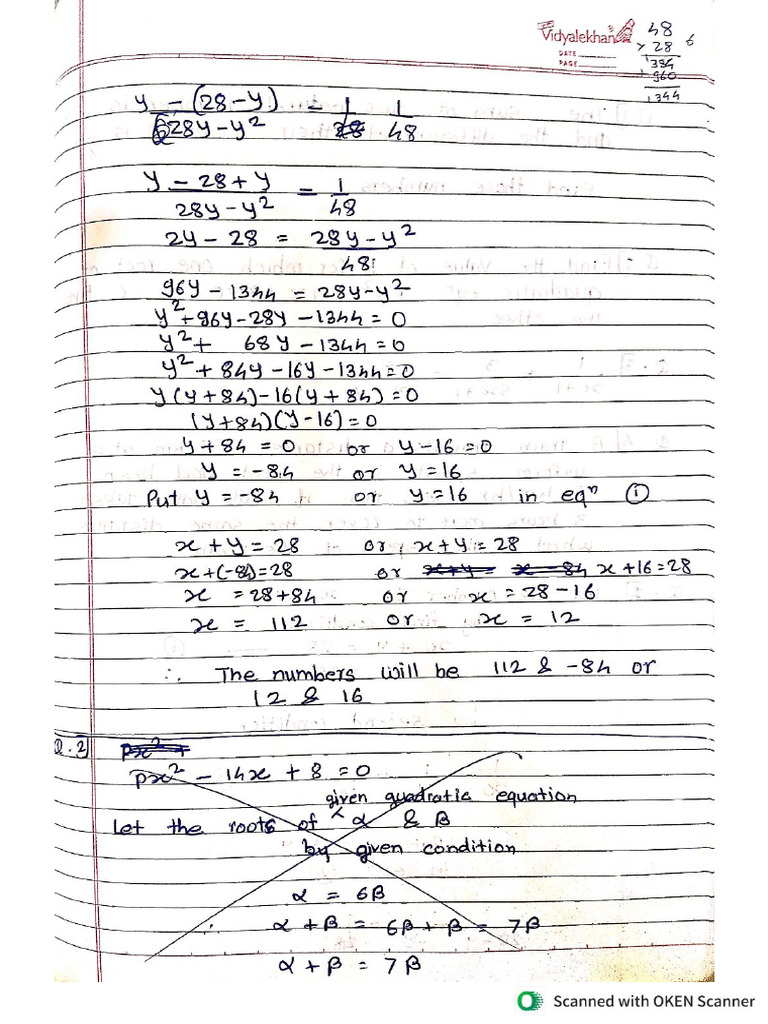 Vidyalekhan
DATE
PAGE
48
× 28
6
1384
+ 960
1344
y - (28-y) / 28y-y² = 1/48
y - 28 + y / 28y-y² = 1/48
2y - 28 = 28y-y² / 48
96y - 1344 = 28y-y²
y² + 96y - 28y - 1344 = 0
y² + 68y - 1344 = 0
y² + 84y - 16y - 1344 = 0
y(y+84) - 16(y+84) = 0
(y+84)(y-16) = 0
y + 84 = 0 or y - 16 = 0
y = -84 or y = 16
Put y = -84 or y = 16 in eqⁿ ①
x + y = 28 or x + y = 28
x + (-84) = 28 or x + 16 = 28
x = 28 + 84 or x = 28 - 16
x = 112 or x = 12
∴ The numbers will be 112 & -84 or
12 & 16
Q.2] px² +
px² - 14x + 8 = 0
given quadratic equation
Let the roots of ^ α & β
by given condition
α = 6β
∴ α + β = 6β + β = 7β
α + β = 7β
Scanned with OKEN Scanner